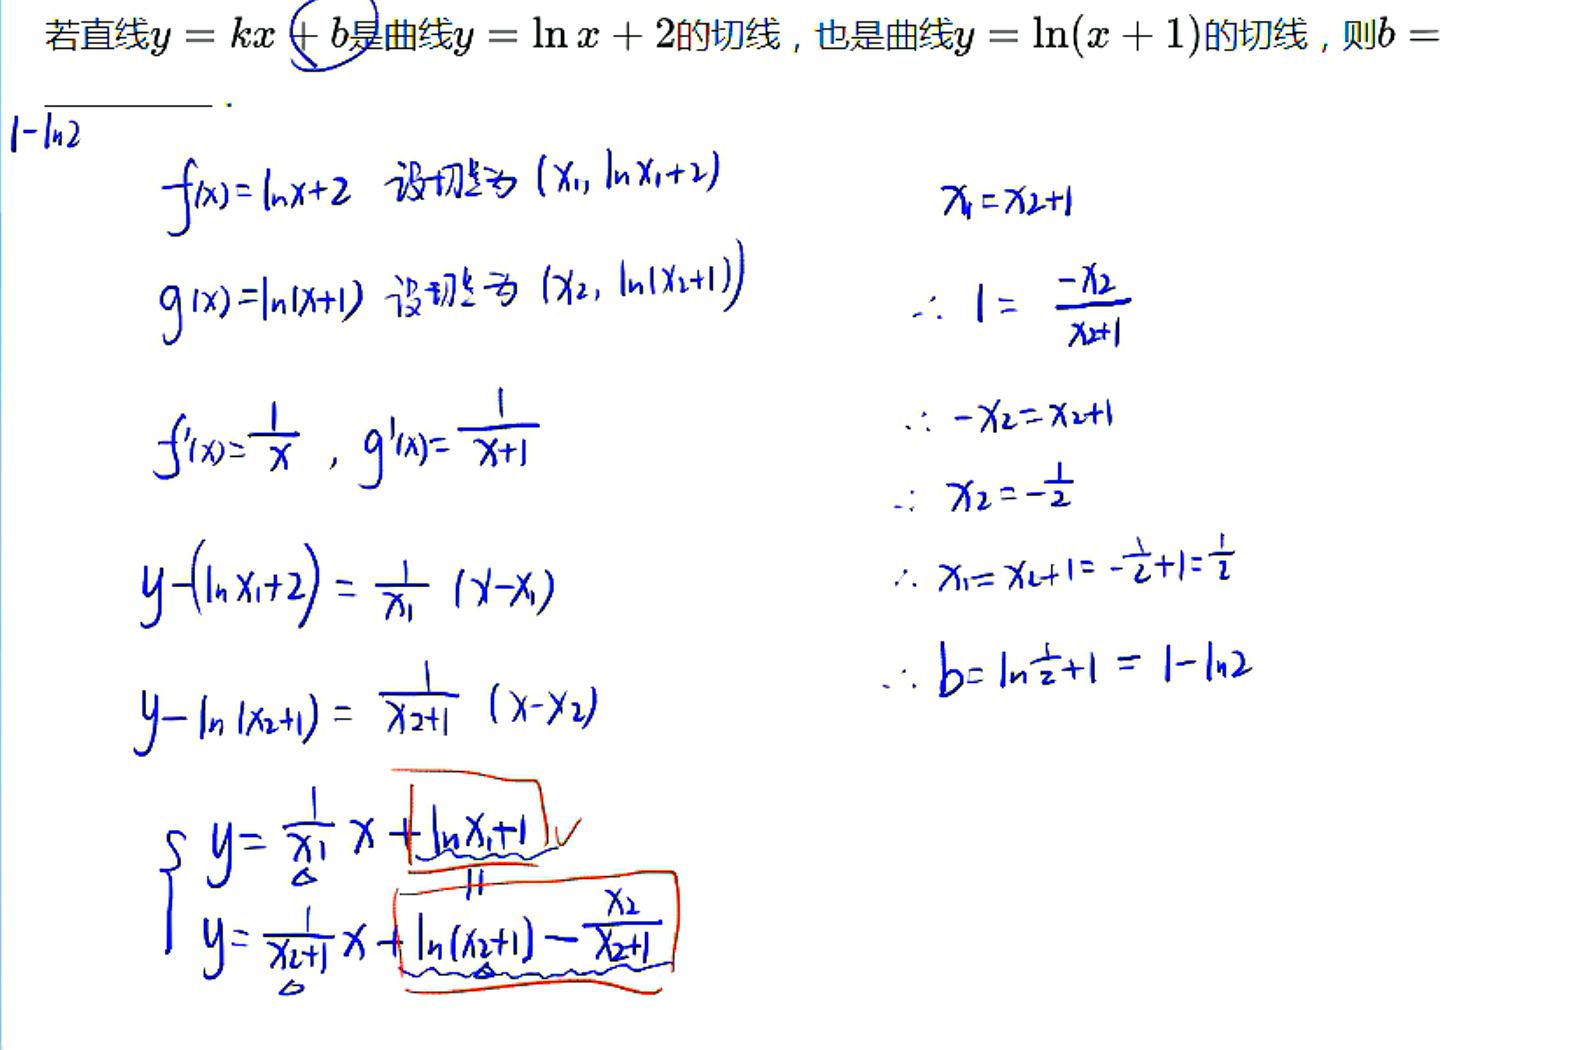 若直线y = kx + b是曲线y = ln x + 2的切线，也是曲线y = ln(x + 1)的切线，则b =
________.
1-ln2
f(x)=lnx+2 设切点为 (x₁, lnx₁+2)
g(x)=ln(x+1) 设切点为 (x₂, ln(x₂+1))
f'(x)=1/x , g'(x)=1/(x+1)
y-(lnx₁+2) = 1/x₁ (x-x₁)
y-ln(x₂+1) = 1/(x₂+1) (x-x₂)
{ y= 1/x₁ x + lnx₁+1 ✓
=
y= 1/(x₂+1) x + ln(x₂+1) - x₂/(x₂+1)
x₁=x₂+1
∴ 1= -x₂/(x₂+1)
∴ -x₂=x₂+1
∴ x₂=-1/2
∴ x₁=x₂+1=-1/2+1=1/2
∴ b=ln1/2+1 = 1-ln2